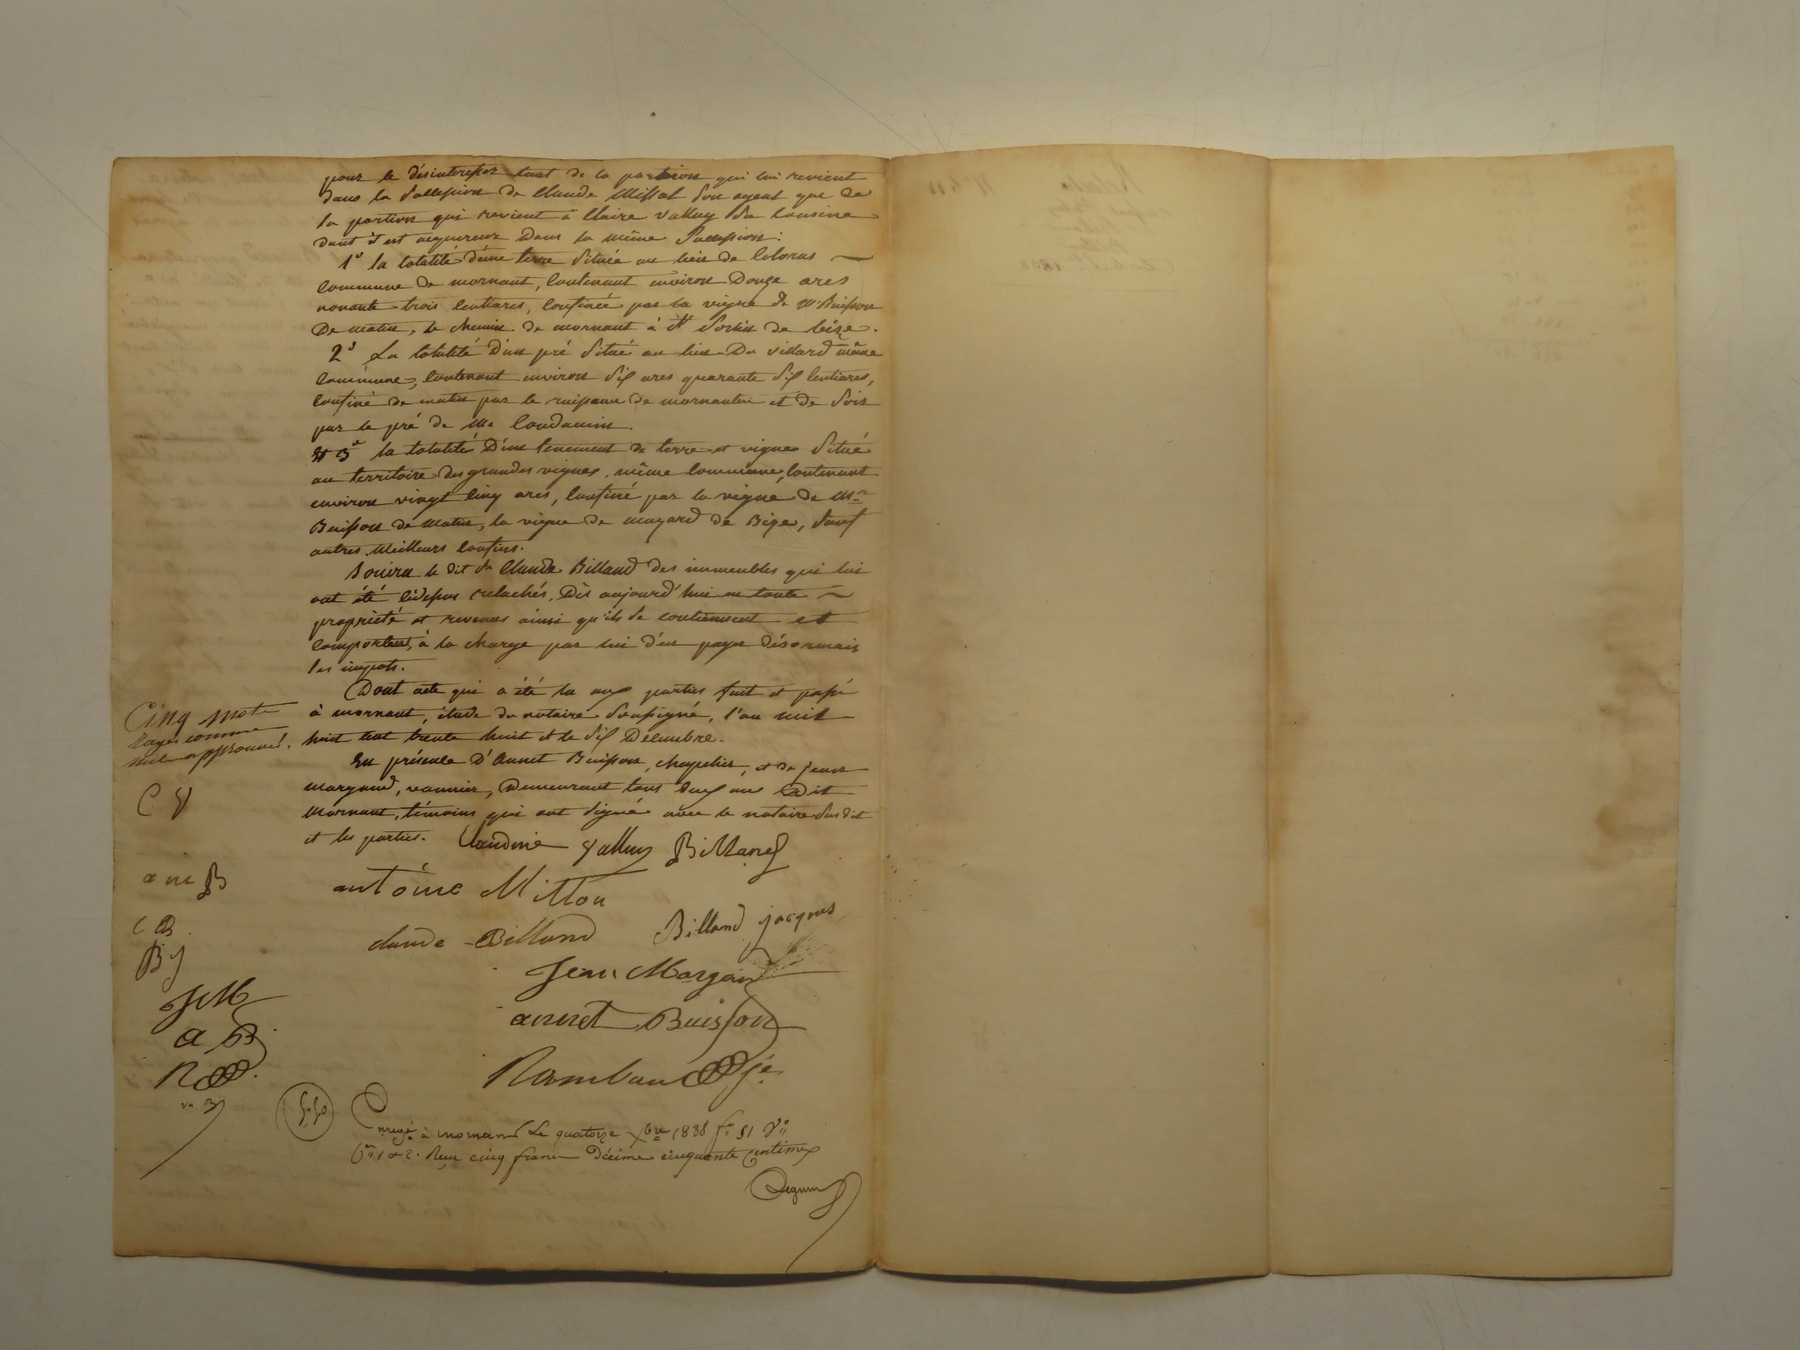 pour le désintéresser tant de la portion qui lui revient
dans la Succession de Claude Missol son ayeul que de
la portion qui revient à Claire Valluy sa cousine
dont il est acquereur dans la même Succession:
1° la totalité d'une terre Située au lieu de
commune de mornant, contenant environ Douze ares
nonante trois centiares, confinée par la vigne de Mr Buisson
De matin, le chemin de mornant à St Sorlin de bize.
2° La totalité D'un pré Situé au lieu Du Villard même
commune, contenant environ Six ares quarante Six centiares,
confiné de matin par le ruisseau de mornantin et de Soir
par le pré de Me Condamin
Et 3° la totalité D'un tenement de terre et vignes Situé
au territoire des grandes vignes, même Commune, contenant
environ vingt cinq ares, confiné par la vigne de Mr
Buisson de Matin, la vigne de de Bize, Sauf
autres Meilleurs Confins.
Jouira le dit Sr Claude Billand des immeubles qui lui
ont été cidessus relachés, Dès aujourd'hui en toute
propriété et revenus ainsi qu'ils Se contiennent et
comportent, à la charge par lui d'en payer désormais
les impots.
Dont acte qui a été lu aux parties fait et passé
à mornant, étude du notaire Soussigné, l'an mil
huit cent trente huit et le Six Décembre.
En présence D'Annet Buisson, chapelier, et de Jean
margand, vannier, Demeurant tous deux au Dit
Mornant, témoins qui ont Signé avec le notaire Susdit
et les parties. Claudine Valluy Billand
antoine Mitton
claude Billand Billand jacques
Jean Margand
annet Buisson
Rambaud
Cinq mots
rayés comme
nul approuvés.
C V
a m B
C B
B J
J M
a B
R
5.50
Enregé à mornant Le quatorze Xbre 1838 f° 51 Vo
Ces 1 et 2. Reçu cinq francs Décime cinquante Centimes